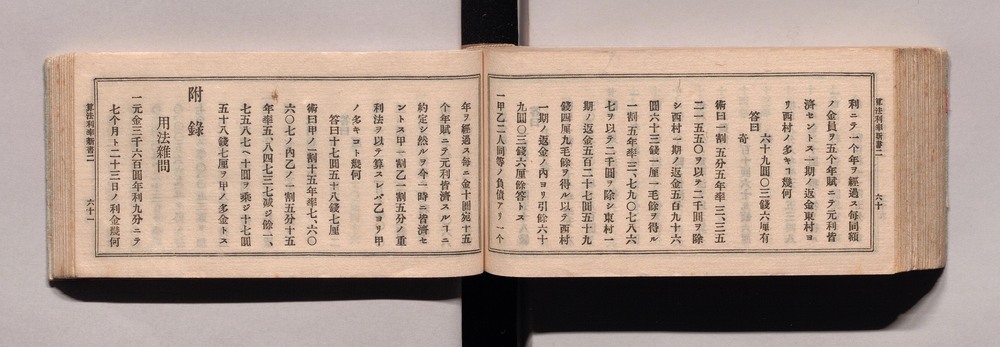 算法利率新書二 六十
利ニテ一个年ヲ經過ス每同額
ノ金員ヲ五个年賦ニテ元利皆
濟セントス一期ノ返金東村ヨ
リ西村ノ多キコ幾何
答曰 六十九圓〇三錢六厘有奇
術曰一割五分五年率三、三五
二一五五〇ヲ以テ二千圓ヲ除
シ西村一期ノ返金五百九十六
圓六十三錢一厘一毛餘ヲ得ル
一割五年率三、七九〇七八六
七ヲ以テ二千圓ヲ除シ東村一
期ノ返金五百二十七圓五十九
錢四厘九毛餘ヲ得ル以テ西村
一期ノ返金ノ內ヨリ引餘六十
九圓〇三錢六厘餘答トス
一甲乙二人同等ノ負債アリ一个
年ヲ經過ス每ニ金十圓宛十五
個年賦ニテ元利皆濟スルコニ
約定シ然ルヲ今一時ニ皆濟セ
ントス甲一割乙一割五分ノ重
利法ヲ以テ算スレバ乙ヨリ甲
ノ多キコト幾何
答曰十七圓五十八錢七厘
術曰甲ノ一割十五年率七、六〇
六〇七ノ內乙ノ一割五分十五
年率五、八四七三七減ジ餘一、
七五八七ヘ十圓ヲ乘ジ十七圓
五十八錢七厘ヲ甲ノ多金トス
附錄
用法雜問
一元金三千六百圓年利九分ニテ
七个月ト二十三日ノ利金幾何
算法利率新書二 六十一